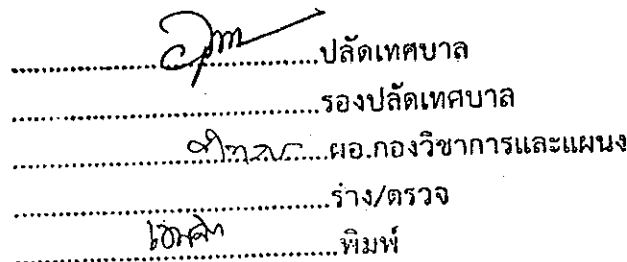 ปลัดเทศบาล
รองปลัดเทศบาล
ผอ.กองวิชาการและแผนง
ร่าง/ตรวจ
พิมพ์